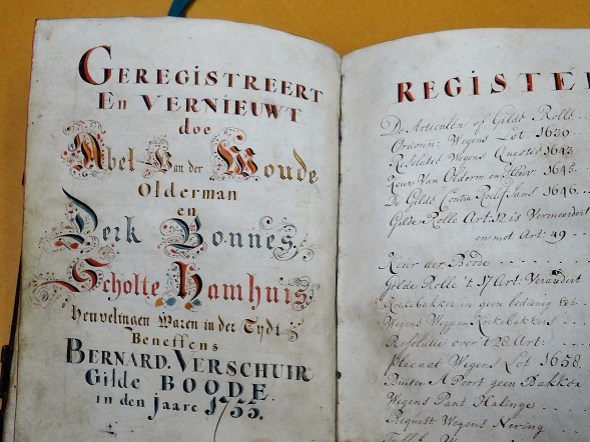 GEREGISTREERT
EN VERNIEUWT
doe
Abel Van der Woude
Olderman
en
Derk Bonnes
Scholte Hamhuis
Heuvelingen Waren in der Tydt
Beneffens
BERNARD. VERSCHUIR
Gilde BOODE.
in den jaare 1755.
REGISTE
De Articulen of Gilde Rolle
Ordonn: Wegens Lot 1630
Resolutie Wegens 1643
Keur Van Olderm en Heuv: 1645.
De Gilde Contra Roelif Jans 1646.
Gilde Rolle Art: 12 is Vermeerdert
en met Art: 49
Keur der Boode
Gilde Rolle 't 17 Art: Verandert
Koekebakker in geen
Wegens Koekebakkers
Resolutie over 't 28 Art:
Placaat Wegens Lot 1658.
Buiten A Poort geen Bakker
Wegens Pant Halinge
Request Wegens Nering